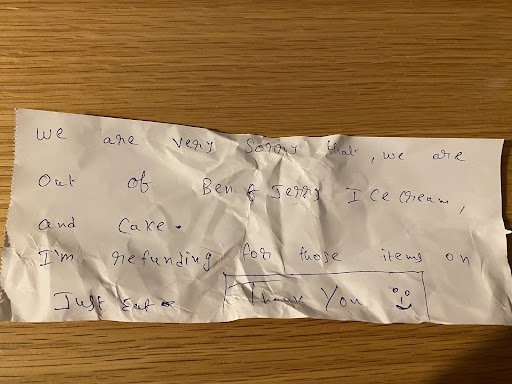 We are very sorry that, we are
out of Ben & Jerry Ice cream,
and cake.
I'm refunding for those items on
Just eat.
Thank You